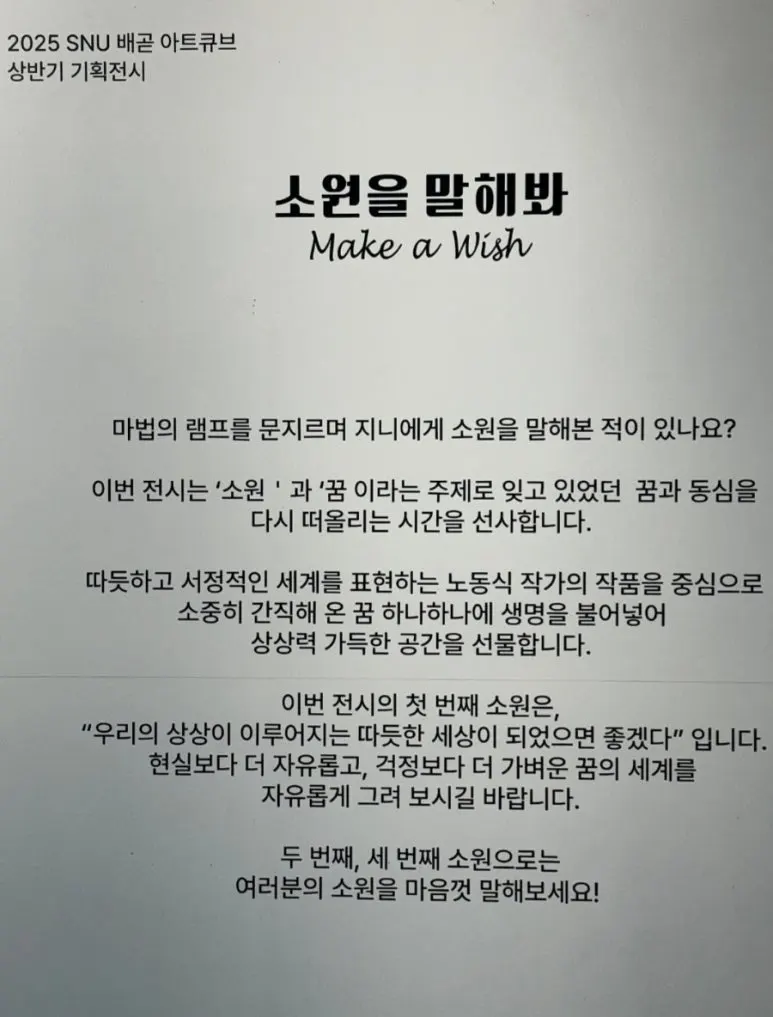 2025 SNU 배곧 아트큐브
상반기 기획전시
소원을 말해봐
Make a Wish
마법의 램프를 문지르며 지니에게 소원을 말해본 적이 있나요?
이번 전시는 ‘소원 ' 과 ‘꿈 이라는 주제로 잊고 있었던 꿈과 동심을
다시 떠올리는 시간을 선사합니다.
따듯하고 서정적인 세계를 표현하는 노동식 작가의 작품을 중심으로
소중히 간직해 온 꿈 하나하나에 생명을 불어넣어
상상력 가득한 공간을 선물합니다.
이번 전시의 첫 번째 소원은,
“우리의 상상이 이루어지는 따듯한 세상이 되었으면 좋겠다” 입니다.
현실보다 더 자유롭고, 걱정보다 더 가벼운 꿈의 세계를
자유롭게 그려 보시길 바랍니다.
두 번째, 세 번째 소원으로는
여러분의 소원을 마음껏 말해보세요!